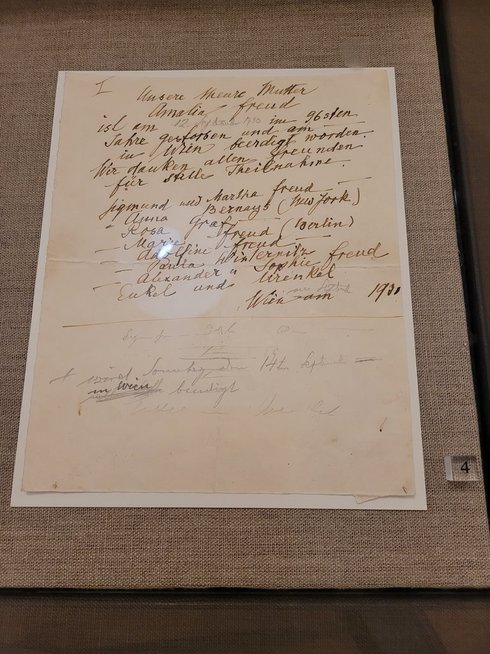 I
Unsere theure Mutter
Amalia Freud
ist am 12 September 1930 im 96sten
Jahre gestorben und am
in Wien beerdigt worden.
Wir danken allen Freunden
für stille Theilnahme.
Sigmund und Martha Freud
Anna Bernays (New York)
– Rosa Graf
– Marie Freud (Berlin)
– Adolfine Freud
– Paula Winternitz
– Alexander u Sophie Freud
Enkel und Urenkel
Wien am 1930
Sonntag den 14ten September
in Wien beerdigt
4